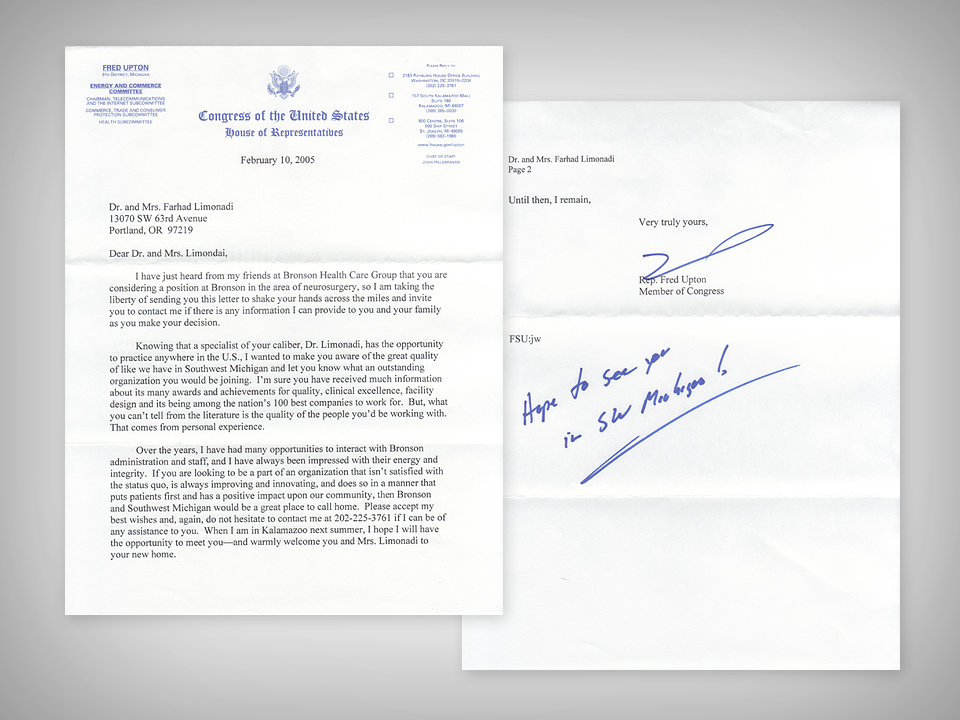 FRED UPTON
6TH DISTRICT, MICHIGAN
ENERGY AND COMMERCE
COMMITTEE
CHAIRMAN, TELECOMMUNICATIONS
AND THE INTERNET SUBCOMMITTEE
COMMERCE, TRADE AND CONSUMER
PROTECTION SUBCOMMITTEE
HEALTH SUBCOMMITTEE
Congress of the United States
House of Representatives
February 10, 2005
PLEASE REPLY TO:
2183 RAYBURN HOUSE OFFICE BUILDING
WASHINGTON, DC 20515–2206
(202) 225–3761
157 SOUTH KALAMAZOO MALL
SUITE 180
KALAMAZOO, MI 49007
(269) 385–0039
800 CENTRE, SUITE 106
800 SHIP STREET
ST. JOSEPH, MI 49085
(269) 982–1986
www.house.gov/upton
CHIEF OF STAFF
JOAN HILLEBRANDS
Dr. and Mrs. Farhad Limonadi
13070 SW 63rd Avenue
Portland, OR 97219
Dear Dr. and Mrs. Limondai,
I have just heard from my friends at Bronson Health Care Group that you are
considering a position at Bronson in the area of neurosurgery, so I am taking the
liberty of sending you this letter to shake your hands across the miles and invite
you to contact me if there is any information I can provide to you and your family
as you make your decision.
Knowing that a specialist of your caliber, Dr. Limonadi, has the opportunity
to practice anywhere in the U.S., I wanted to make you aware of the great quality
of like we have in Southwest Michigan and let you know what an outstanding
organization you would be joining. I'm sure you have received much information
about its many awards and achievements for quality, clinical excellence, facility
design and its being among the nation's 100 best companies to work for. But, what
you can't tell from the literature is the quality of the people you'd be working with.
That comes from personal experience.
Over the years, I have had many opportunities to interact with Bronson
administration and staff, and I have always been impressed with their energy and
integrity. If you are looking to be a part of an organization that isn't satisfied with
the status quo, is always improving and innovating, and does so in a manner that
puts patients first and has a positive impact upon our community, then Bronson
and Southwest Michigan would be a great place to call home. Please accept my
best wishes and, again, do not hesitate to contact me at 202-225-3761 if I can be of
any assistance to you. When I am in Kalamazoo next summer, I hope I will have
the opportunity to meet you—and warmly welcome you and Mrs. Limonadi to
your new home.
Dr. and Mrs. Farhad Limonadi
Page 2
Until then, I remain,
Very truly yours,
Rep. Fred Upton
Member of Congress
FSU:jw
Hope to see you
in SW Michigan!